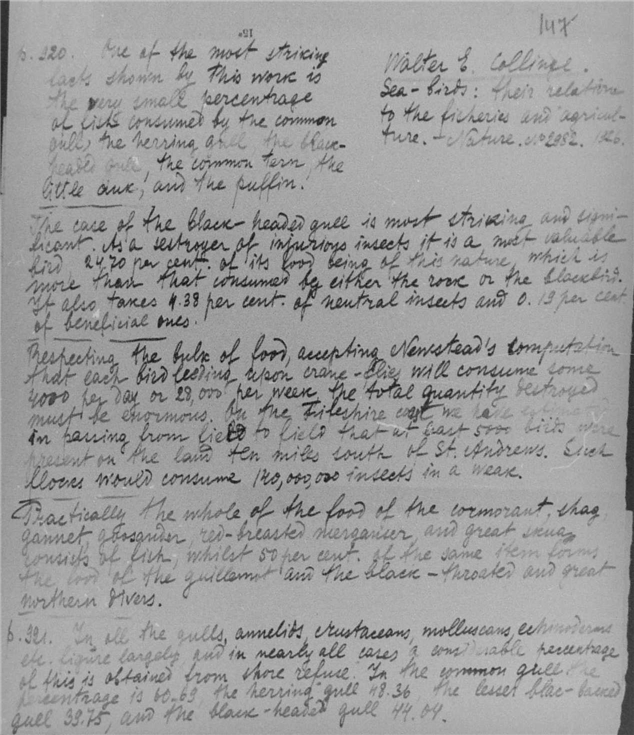 147
p. 320. One of the most striking
facts shown by this work is
the very small percentage
of fish consumed by the common
gull, the herring gull, the black-
headed gull, the common tern, the
little auk, and the puffin.
Walter E. Collinge.
Sea-birds: their relation
to the fisheries and agricul-
ture. – Nature. No 2952. 1926.
The case of the black-headed gull is most striking and signi-
ficant. As a destroyer of injurious insects it is a most valuable
bird, 24.70 per cent. of its food being of this nature, which is
more than that consumed by either the rook or the blackbird.
It also takes 4.38 per cent. of neutral insects and 0.19 per cent
of beneficial ones.
Respecting the bulk of food, accepting Newstead's computation
that each bird feeding upon crane-flies will consume some
4000 per day or 28,000 per week, the total quantity destroyed
must be enormous. On the Fifeshire coast we have estimated
in passing from field to field that at least 5000 birds were
present on the land ten miles south of St. Andrews. Such
flocks would consume 140,000,000 insects in a weak.
Practically the whole of the food of the cormorant, shag,
gannet, goosander, red-breasted merganser, and great skua
consists of fish, whilst 50 per cent. of the same item forms
the food of the guillemot and the black-throated and great
northern divers.
p. 321. In all the gulls, annelids, crustaceans, molluscans, echinoderms
etc. figure largely, and in nearly all cases a considerable percentage
of this is obtained from shore refuse. In the common gull the
percentage is 60.69, the herring gull 48.36, the lesser blac-backed
gull 39.75, and the black-headed gull 44.04.